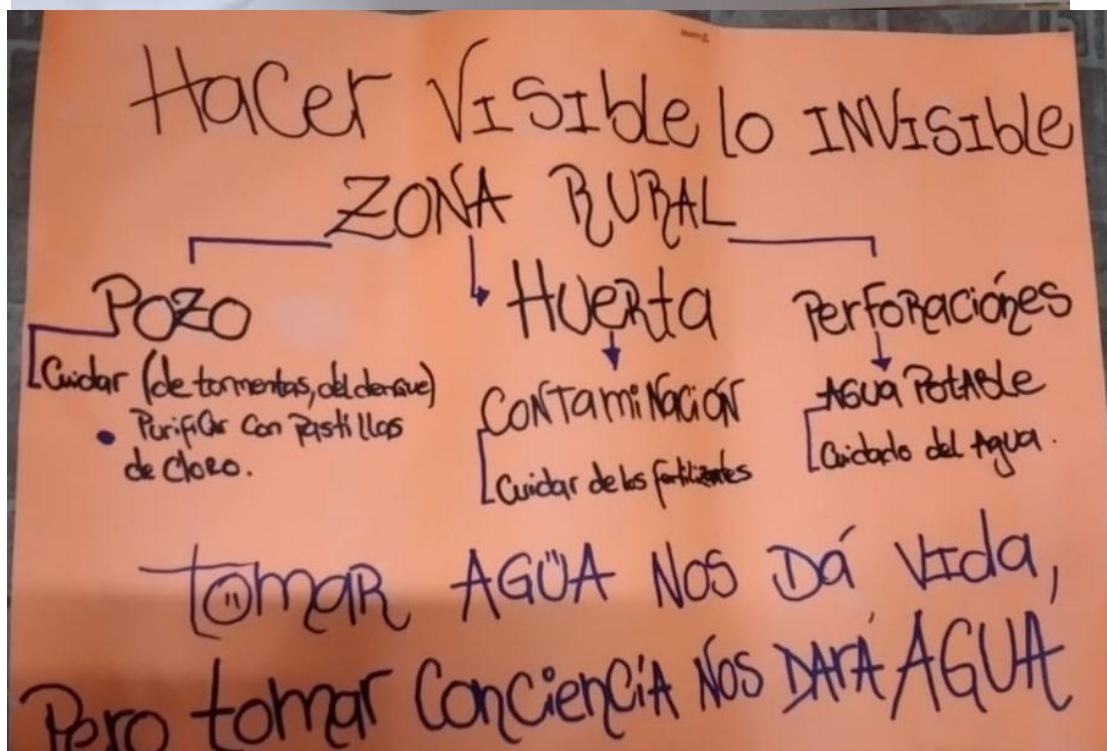 Hacer Visible lo INVisible
ZONA RURAL
POZO
Cuidar (de tormentas, del dengue)
• Purificar con Pastillas
de Cloro.
HUERta
CONTamiNación
Cuidar de los fertilizantes
PerfoRaciónes
AGUA PotABle
Cuidado del Agua.
tomaR AGÜA Nos Dá VIda,
Pero tomar ConCienCiA Nos DARÁ AGUA